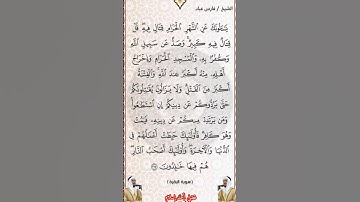 الشيخ / فارس عباد
يَسْـَٔلُونَكَ عَنِ ٱلشَّهْرِ ٱلْحَرَامِ قِتَالٍ فِيهِ ۖ قُلْ
قِتَالٌ فِيهِ كَبِيرٌ ۖ وَصَدٌّ عَن سَبِيلِ ٱللَّهِ
وَكُفْرٌۢ بِهِۦ وَٱلْمَسْجِدِ ٱلْحَرَامِ وَإِخْرَاجُ
أَهْلِهِۦ مِنْهُ أَكْبَرُ عِندَ ٱللَّهِ ۚ وَٱلْفِتْنَةُ
أَكْبَرُ مِنَ ٱلْقَتْلِ ۗ وَلَا يَزَالُونَ يُقَٰتِلُونَكُمْ
حَتَّىٰ يَرُدُّوكُمْ عَن دِينِكُمْ إِنِ ٱسْتَطَٰعُوا۟ ۚ
وَمَن يَرْتَدِدْ مِنكُمْ عَن دِينِهِۦ فَيَمُتْ
وَهُوَ كَافِرٌ فَأُو۟لَٰٓئِكَ حَبِطَتْ أَعْمَٰلُهُمْ فِى
ٱلدُّنْيَا وَٱلْءَاخِرَةِ ۖ وَأُو۟لَٰٓئِكَ أَصْحَٰبُ ٱلنَّارِ ۖ
هُمْ فِيهَا خَٰلِدُونَ
(سورة البقرة)